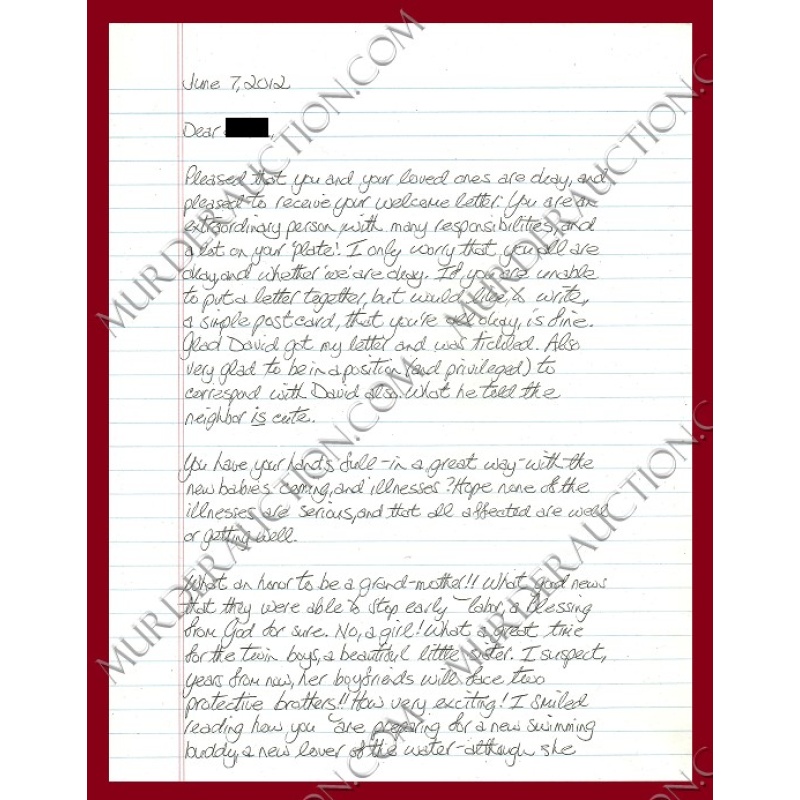 June 7, 2012
Dear
Pleased that you and your loved ones are okay, and
pleased to receive your welcome letter. You are an
extraordinary person, with many responsibilities, and
a lot on your 'plate'. I only worry that you all are
okay, and whether 'we' are okay. If you are unable
to put a letter together, but would like to write,
a simple postcard, that you're all okay, is fine.
Glad David got my letter and was tickled. Also
very glad to be in a position (and privileged) to
correspond with David also. What he told the
neighbor is cute.
You have your hands full-in a great way-with the
new babies coming, and illnesses? Hope none of the
illnesses are serious, and that all affected are well
or getting well.
What an honor to be a grand-mother!! What good news
that they were able to stop early-labor, a blessing
from God for sure. No, a girl! What a great time
for the twin boys, a beautiful little sister. I suspect,
years from now, her boyfriends will face two
protective brothers!! How very exciting! I smiled
reading how you are preparing for a new swimming
buddy, a new lover of the water-although she
MURDERAUCTION.COM